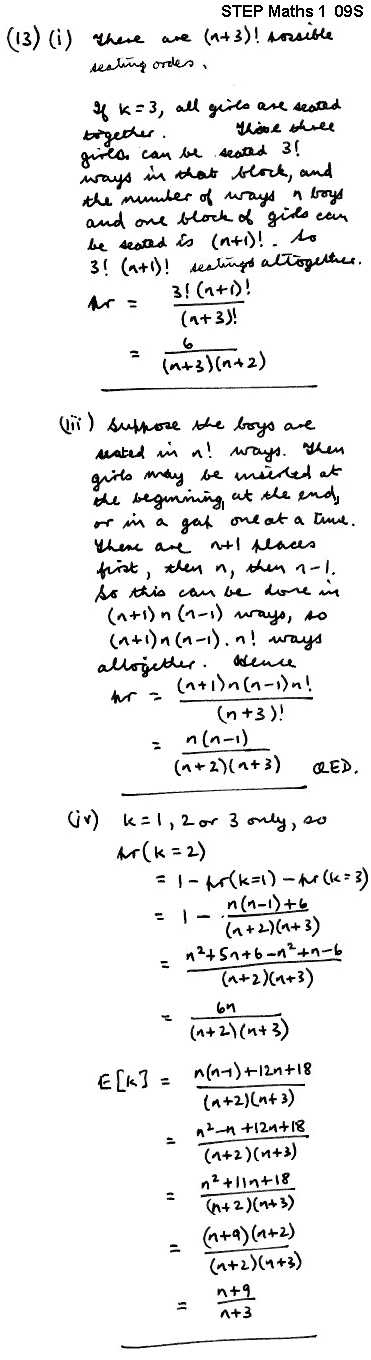 STEP Maths 1 09S
(13) (i) There are (n+3)! possible
seating orders.
If k=3, all girls are seated
together. These three
girls can be seated 3!
ways in that block, and
the number of ways n boys
and one block of girls can
be seated is (n+1)!. So
3! (n+1)! seatings altogether.
pr = 3! (n+1)! / (n+3)!
= 6 / (n+3)(n+2)
(iii) Suppose the boys are
seated in n! ways. Then
girls may be inserted at
the beginning, at the end,
or in a gap one at a time.
There are n+1 places
first, then n, then n-1.
So this can be done in
(n+1) n (n-1) ways, so
(n+1) n (n-1). n! ways
altogether. Hence
pr = (n+1) n (n-1) n! / (n+3)!
= n(n-1) / (n+2)(n+3) QED.
(iv) k=1, 2 or 3 only, so
pr(k=2)
= 1 - pr(k=1) - pr(k=3)
= 1 - n(n-1)+6 / (n+2)(n+3)
= n²+5n+6-n²+n-6 / (n+2)(n+3)
= 6n / (n+2)(n+3)
E[k] = n(n-1)+12n+18 / (n+2)(n+3)
= n²-n+12n+18 / (n+2)(n+3)
= n²+11n+18 / (n+2)(n+3)
= (n+9)(n+2) / (n+2)(n+3)
= n+9 / n+3